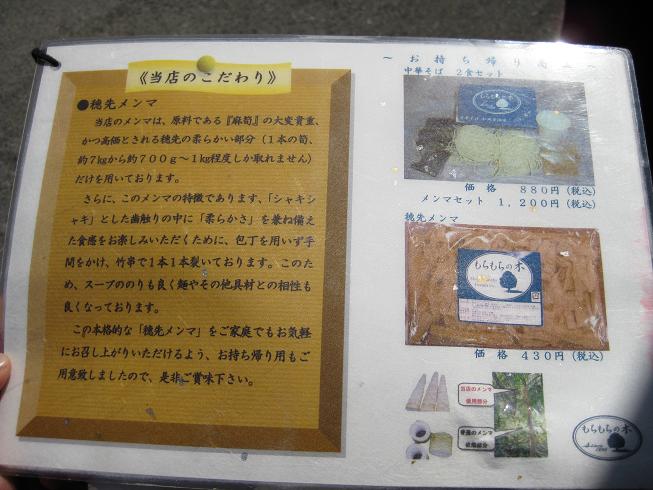 《当店のこだわり》
●穂先メンマ
当店のメンマは、原料である『麻筍』の大変貴重、
かつ高価とされる穂先の柔らかい部分（１本の筍、
約７kgから約７００ｇ～１kg程度しか取れません）
だけを用いております。
さらに、このメンマの特徴であります、「シャキシ
ャキ」とした歯触りの中に「柔らかさ」を兼ね備え
た食感をお楽しみいただくために、包丁を用いず手
間をかけ、竹串で１本１本裂いております。このた
め、スープののりも良く麺やその他具材との相性も
良くなっております。
この本格的な「穂先メンマ」をご家庭でもお気軽
にお召し上がりいただけるよう、お持ち帰り用もご
用意致しましたので、是非ご賞味下さい。
～お持ち帰り
中華そば ２食セット
もちもちの木
価格 ８８０円（税込）
メンマセット １,２００円（税込）
穂先メンマ
もちもちの木
価格 ４３０円（税込）
当店のメンマ
使用部分
普通のメンマ
使用部分
もちもちの木